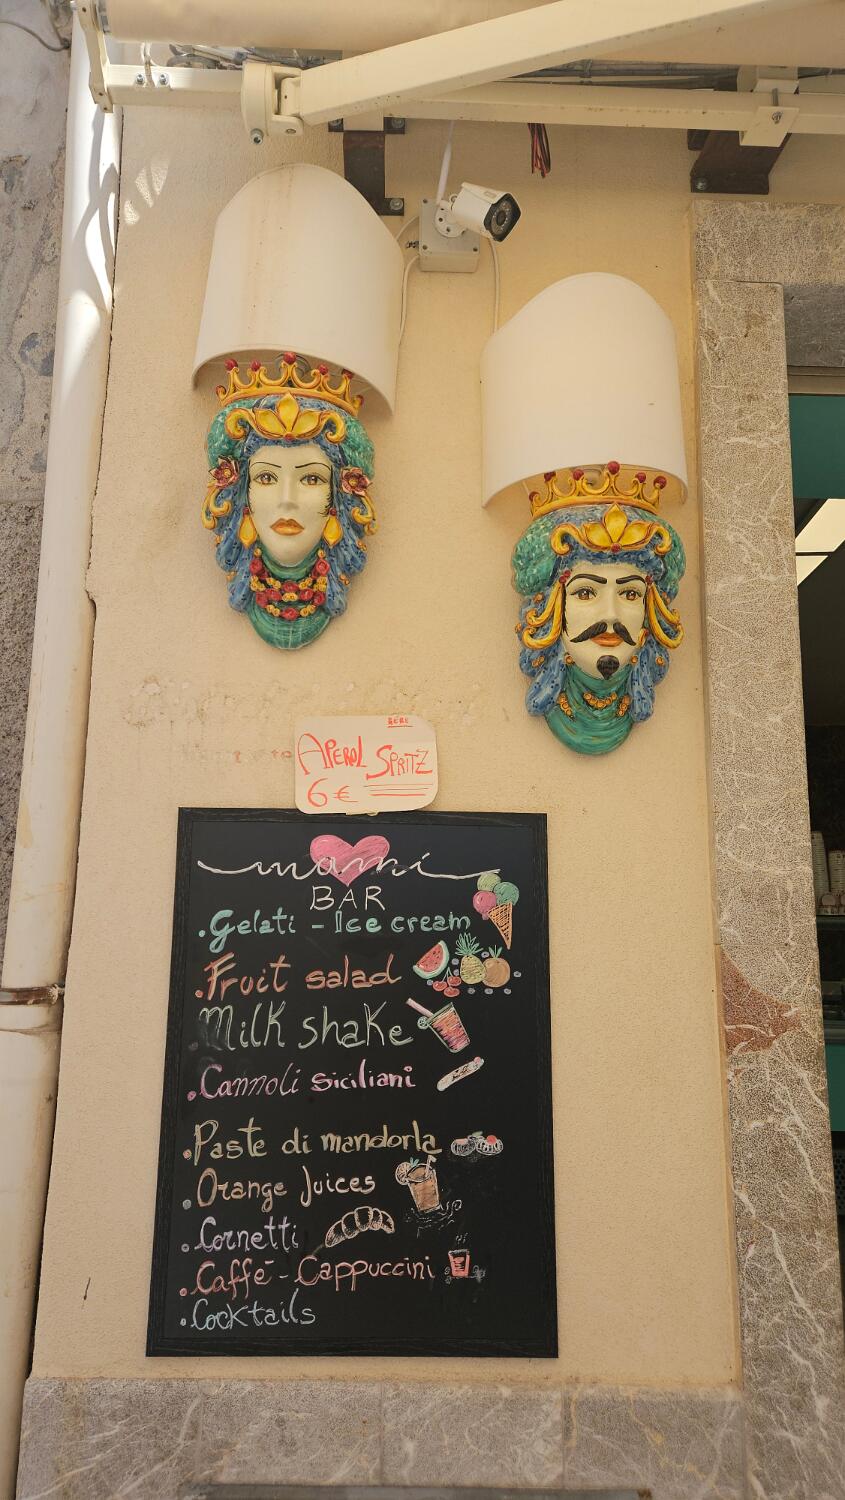 APEROL SPRITZ
6 €
mami
BAR
. Gelati - Ice cream
. Fruit salad
. Milk shake
. Cannoli siciliani
. Paste di mandorla
. Orange Juices
. Cornetti
. Caffè - Cappuccini
. Cocktails